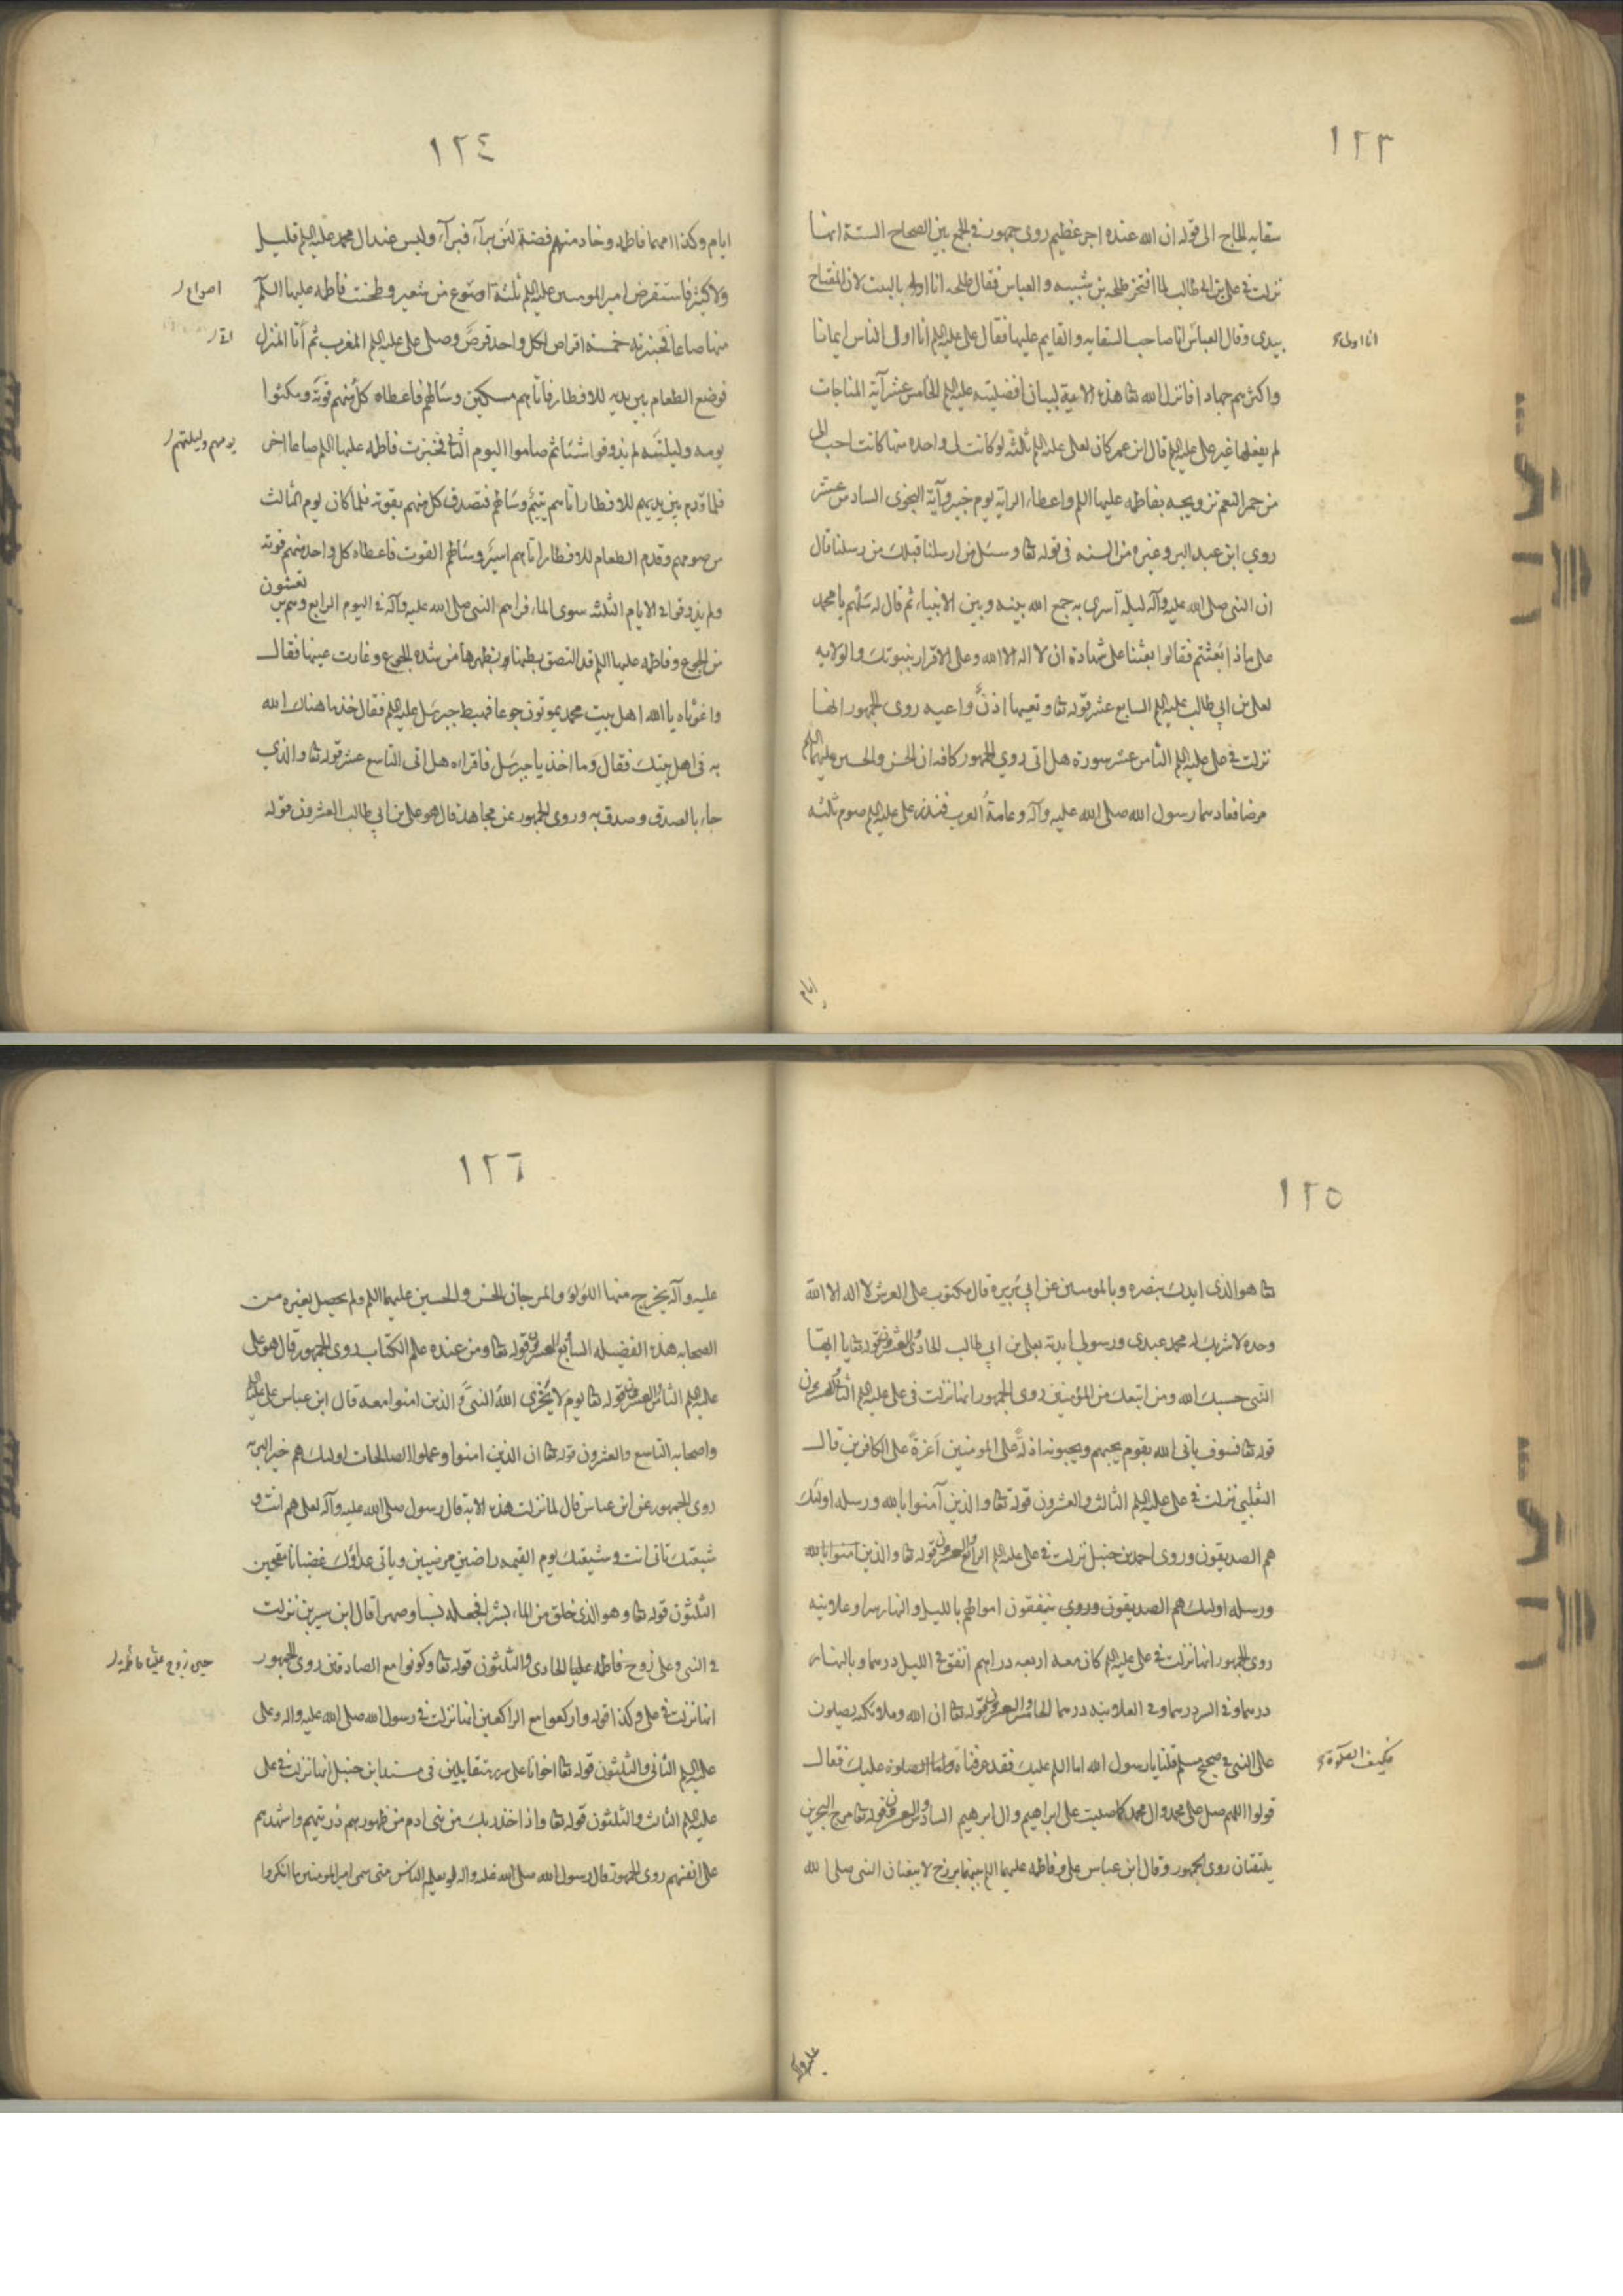 ١٢٣
سقايه الحاج الى قوله ان الله عنده اجر عظيم روى جمهور فى الجمع بين الصحاح الستة انها
نزلت فى على بن ابى طالب لما افتخر طلحه بن شيبه و العباس فقال طلحه انا اولى بالبيت لان المفتاح
بيدى وقال العباس انا صاحب السقايه و القايم عليها فقال على عليه السلم انا اولى الناس ايمانا
انا اولى
واكثرهم جهادا فانزل الله تعا هذه الاية لبيان افضليته عليه السلم الخامس عشر آية المناجات
لم يفعلها غير على عليه السلم قال ابن عمر كان لعلى عليه السلم ثلثة لو كانت لى واحده منها كانت احب الى
من حمر النعم تزويجه بفاطمه عليها السلم واعطاء الراية يوم خيبر وآية النجوى السادس عشر
روي ابن عبد البر وغيره من السنه فى قوله تعا وسئل من ارسلنا قبلك من رسلنا قال
ان النبى صلى الله عليه وآله ليله آسري به جمع الله بينه وبين الانبياء ثم قال له سلهم يا محمد
على ماذا بعثتم فقالوا بعثنا على شهادة ان لا اله الا الله وعلى الاقرار بنبوتك والولايه
لعلى بن ابي طالب عليه السلم السابع عشر قوله تعا وتعيها اذنٌ واعيه روى الجمهور انها
نزلت فى على عليه السلم الثامن عشر سورة هل اتى روي الجمهور كافه ان الحسن والحسين عليهما السلم
مرضا فعادهما رسول الله صلى الله عليه وآله وعامة العرب فنذر على عليه السلم صوم ثلثه
ايام
١٢٤
ايام وكذا امهما فاطمه وخادمتهم فضة لئن برآء فبرآء وليس عند ال محمد عليه السلم قليل
ولا كثير فاستقرض امير المومنين عليه السلم ثلثة اوصوع من شعير وطحنت فاطمه عليها السلم
اصواع
منها صاعا فخبزته خمسة اقراص لكل واحد قرصٌ وصلى على عليه السلم المغرب ثم أتا المنزل
فوضع الطعام بين يديه للافطار فاتاهم مسكين وسالهم فاعطاه كل منهم قوته ومكثوا
يومه وليلته لم يذوقوا شيئا ثم صاموا اليوم الثانى فخبزت فاطمه عليها السلم صاعا اخر
يومهم وليلتهم
فلما قدم بين يديهم للافطار اتاهم يتيمٌ وسالهم فتصدق كل منهم بقوته فلما كان يوم الثالث
من صومهم وقدم الطعام للافطار اتاهم اسيرٌ وسالهم القوت فاعطاه كل واحد منهم قوته
ولم يذوقوا فى الايام الثلثه سوى الماء فراهم النبى صلى الله عليه وآله فى اليوم الرابع وهم
من الجوع وفاطمه عليها السلم قد التصق بطنها بظهرها من شده الجوع وغارت عينها فقال
واغوثاه يا الله اهل بيت محمد يموتون جوعا فهبط جبرئيل عليه السلم فقال خذ ما هناك الله
به فى اهل بيتك فقال وما اخذ يا جبرئيل فاقراه هل اتى التاسع عشر قوله تعا والذي
جاء بالصدق وصدق به وروى الجمهور عن مجاهد قال هو على بن ابي طالب العشرون قوله
١٢٥
تعا هو الذى ايدك بنصره وبالمومنين عن ابي هريرة قال مكتوب على العرش لا اله الا الله
وحده لا شريك له محمد عبدى ورسولى ايدته بعلى بن ابي طالب الحادى والعشرون قوله تعا يا ايها
النبى حسبك الله ومن اتبعك من المؤمنين روى الجمهور انها نزلت فى على عليه السلم الثانى والعشرون
قوله تعا فسوف ياتى الله بقوم يحبهم ويحبونه اذلة على المومنين اعزة على الكافرين قال
الثعلبى نزلت فى على عليه السلم الثالث والعشرون قوله تعا والذين آمنوا بالله ورسله اولئك
هم الصديقون وروى احمد بن حنبل نزلت فى على عليه السلم الرابع والعشرون قوله تعا والذين آمنوا بالله
ورسله اولئك هم الصديقون وروي ينفقون اموالهم بالليل والنهار سرا وعلانيه
روى الجمهور انها نزلت فى على عليه السلم كان معه اربعه دراهم انفق فى الليل درهما وبالنهار
درهما وفى السر درهما وفى العلانيه درهما الخامس والعشرون قوله تعا ان الله وملائكته يصلون
على النبى فى صحيح مسلم قلنا يا رسول الله اما السلم عليك فقد عرفناه واما الصلوة عليك فقال
فكيف الصلوة
قولوا اللهم صل على محمد وال محمد كما صليت على ابراهيم وال ابرهيم السادس والعشرون قوله تعا مرج البحرين
يلتقيان روى الجمهور وقال ابن عباس على وفاطمه عليهما السلم بينهما برزخ لا يبغيان النبى صلى الله
عليه وآله
١٢٦
عليه وآله يخرج منها اللؤلؤ والمرجان الحسن والحسين عليهما السلم ولم يحصل لغيره من
الصحابه هذه الفضيله السابع والعشرون قوله تعا ومن عنده علم الكتاب روى الجمهور قال هو على
عليه السلم الثامن والعشرون قوله تعا يوم لا يُخزى الله النبى والذين امنوا معه قال ابن عباس على عليه السلم
واصحابه التاسع والعشرون قوله تعا ان الذين امنوا وعملوا الصالحات اولئك هم خير البريه
روى الجمهور عن ابن عباس قال لما نزلت هذه الاية قال رسول صلى الله عليه وآله لعلى هم انت و
شيعتك تاتى انت وشيعتك يوم القيمه راضين مرضيين وياتى عدوك غضبانا مقمحين
الثلثون قوله تعا وهو الذى خلق من الماء بشرا فجعله نسبا وصهرا قال ابن سيرين نزلت
فى النبى وعلى زوج فاطمه عليا الحادى والثلثون قوله تعا وكونوا مع الصادقين روى الجمهور
حين زوج عليا فاطمة
انها نزلت فى على وكذا قوله واركعوا مع الراكعين انها نزلت فى رسول الله صلى الله عليه واله وعلى
عليه السلم الثانى والثلثون قوله تعا اخوانا على سرر متقابلين فى مسند ابن حنبل انها نزلت فى على
عليه السلم الثالث والثلثون قوله تعا واذ اخذ ربك من بنى ادم من ظهورهم ذريتهم واشهدهم
على انفسهم روى الجمهور قال رسول الله صلى الله عليه واله لو يعلم الناس متى سمى امير المومنين ما انكروا